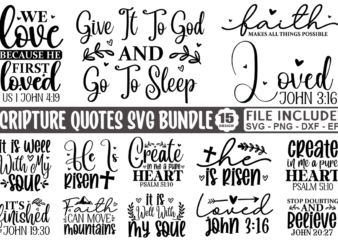 WE
love
BECAUSE HE
FIRST
loved
US 1 JOHN 4:19
Give It To God
AND
Go To Sleep
faith
MAKES ALL THINGS POSSIBLE
Loved
JOHN 3:16
CRIPTURE QUOTES SVG BUNDLE
15
FILE INCLUDE
SVG - PNG - DXF - EP
it is well
With My
soul
He Is
risen
Create
in me a pure
HEART
PSALM 51:10
he
is risen
CREATE
in me a pure
HEART
PSALM 51:10
IT'S
finished
JOHN 19:30
Faith
CAN MOVE
mountains
it is
Well With
my
soul
loved
John 3:16
STOP DOUBTING
AND
Believe
JOHN 20:27